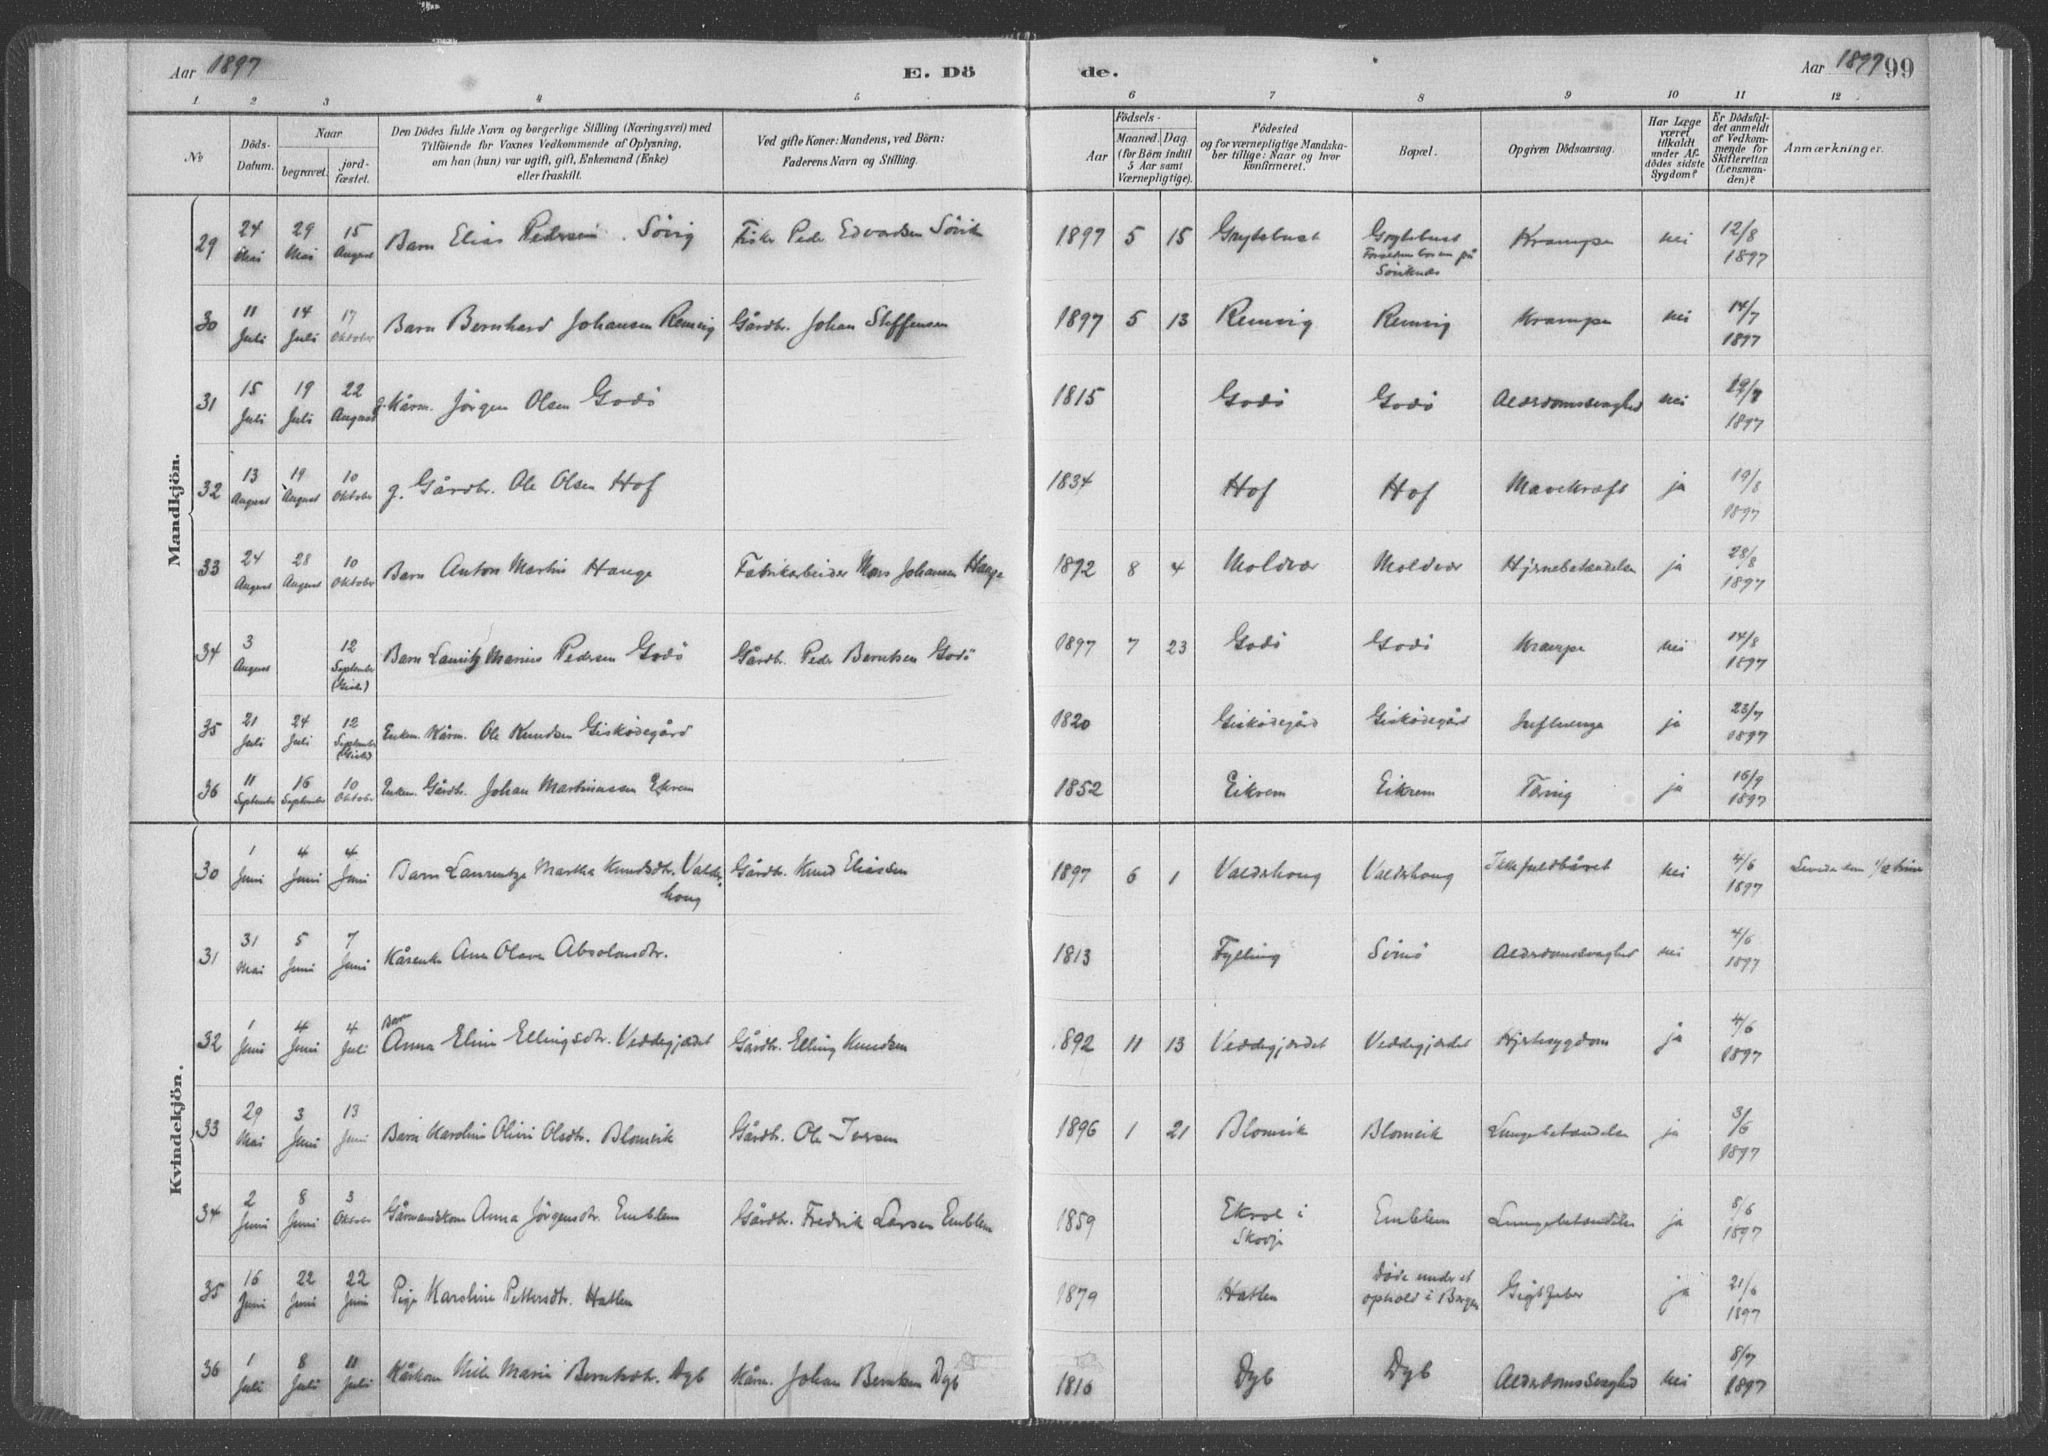 Aar 1897
E. Dö
de.
Aar 1897 99
1 2 3 4 5 6 7 8 9 10 11 12
№
Döds-Datum.
Naar
begravet.
jord-fæstet.
Den Dödes fulde Navn og borgerlige Stilling (Næringsvei) med
Tilföiende for Voxnes Vedkommende af Oplysning,
om han (hun) var ugift, gift, Enkemand (Enke)
eller fraskilt.
Ved gifte Koner: Mandens, ved Börn:
Faderens Navn og Stilling.
Födsels-
Aar
Maaned. Dag.
(for Börn indtil
5 Aar samt
Værnepligtige).
Födested
og for værnepligtige Mandska-
ber tillige: Naar og hvor
konfirmeret.
Bopæl.
Opgiven Dödsaarsag.
Har Læge
været
tilkaldt
under Af-
dödes sidste
Sygdom?
Er Dödsfal-
det anmeldt
af Vedkom-
mende for
Skifteretten
(Lensman-
den)?
Anmærkninger.
Mandkjön.
29 24 Mai 29 Mai 15 August Barn Elias Pedersen Sövig Fisker Peder Edvardsen Sövik 1897 5 15 Grytebust Grytebust Forældrene bor på Söviknæs Krampe nei 12/8 1897
30 11 Juli 14 Juli 17 Oktober Barn Bernhard Johansen Remvig Gårdbr. Johan Steffensen 1897 5 13 Remvig Remvig Krampe nei 14/7 1897
31 15 Juli 19 Juli 22 August g. Kårm. Jörgen Olsen Godö 1815 Godö Godö Alderdomssvaghed nei 19/7 1897
32 13 August 19 August 10 Oktober g. Gårdbr. Ole Olsen Hof 1834 Hof Hof Mavekræft ja 19/8 1897
33 24 August 28 August 10 Oktober Barn Anton Martin Hauge Fabrikarbeider Mons Johansen Hauge 1892 8 4 Moldvær Moldvær Hjernebetændelse ja 28/8 1897
34 3 August 12 September (Giske) Barn Lauritz Marius Pedersen Godö Gårdbr. Peder Berntsen Godö 1897 7 23 Godö Godö Krampe nei 14/8 1897
35 21 Juli 24 Juli 12 September (Giske) Enkem. Kårm. Ole Knudsen Gisködegård 1820 Gisködegård Gisködegård Influenza ja 23/7 1897
36 11 September 16 September 10 Oktober Enkem. Gårdbr. Johan Martinussen Ekrem 1852 Eikrem Eikrem Tæring ja 16/9 1897
Kvindekjön.
30 1 Juni 4 Juni 4 Juni Barn Laurentze Martha Knudsdtr. Valderhoug Gårdbr. Knud Eliassen 1897 6 1 Valderhoug Valderhoug Ikke fuldbåret nei 4/6 1897 Levede kun 1/2 time
31 31 Mai 5 Juni 7 Juni Kårenke Ane Olava Absolonsdtr. 1813 Fylling Alderdomssvaghed nei 4/6 1897
32 1 Juni 4 Juni 4 Juli Barn Anna Eline Ellingsdtr. Veddegjærdet Gårdbr. Elling Knudsen 1892 11 13 Veddegjærdet Veddegjærdet Hjertesygdom ja 4/6 1897
33 29 Mai 3 Juni 13 Juni Barn Karoline Oline Olsdtr. Blomvik Gårdbr. Ole Iversen 1896 1 21 Blomvik Blomvik Lungebetændelse ja 3/6 1897
34 2 Juni 8 Juni 3 Oktober Gårmandskone Anna Jörgensdtr. Emblem Gårdbr. Fredrik Larsen Emblem 1859 Ekrol i Skodje Emblem Lungebetændelse ja 8/6 1897
35 16 Juni 22 Juni 22 Juni Pige Karoline Pettersdtr. Hatlen 1879 Hatlen Döde under et ophold i Bergen Gigtfeber ja 21/6 1897
36 1 Juli 8 Juli 11 Juli Kårkone Marie Berntsdtr. Dyb Kårm. Johan Berntsen Dyb 1816 Dyb Dyb Alderdomssvaghed nei 8/7 1897